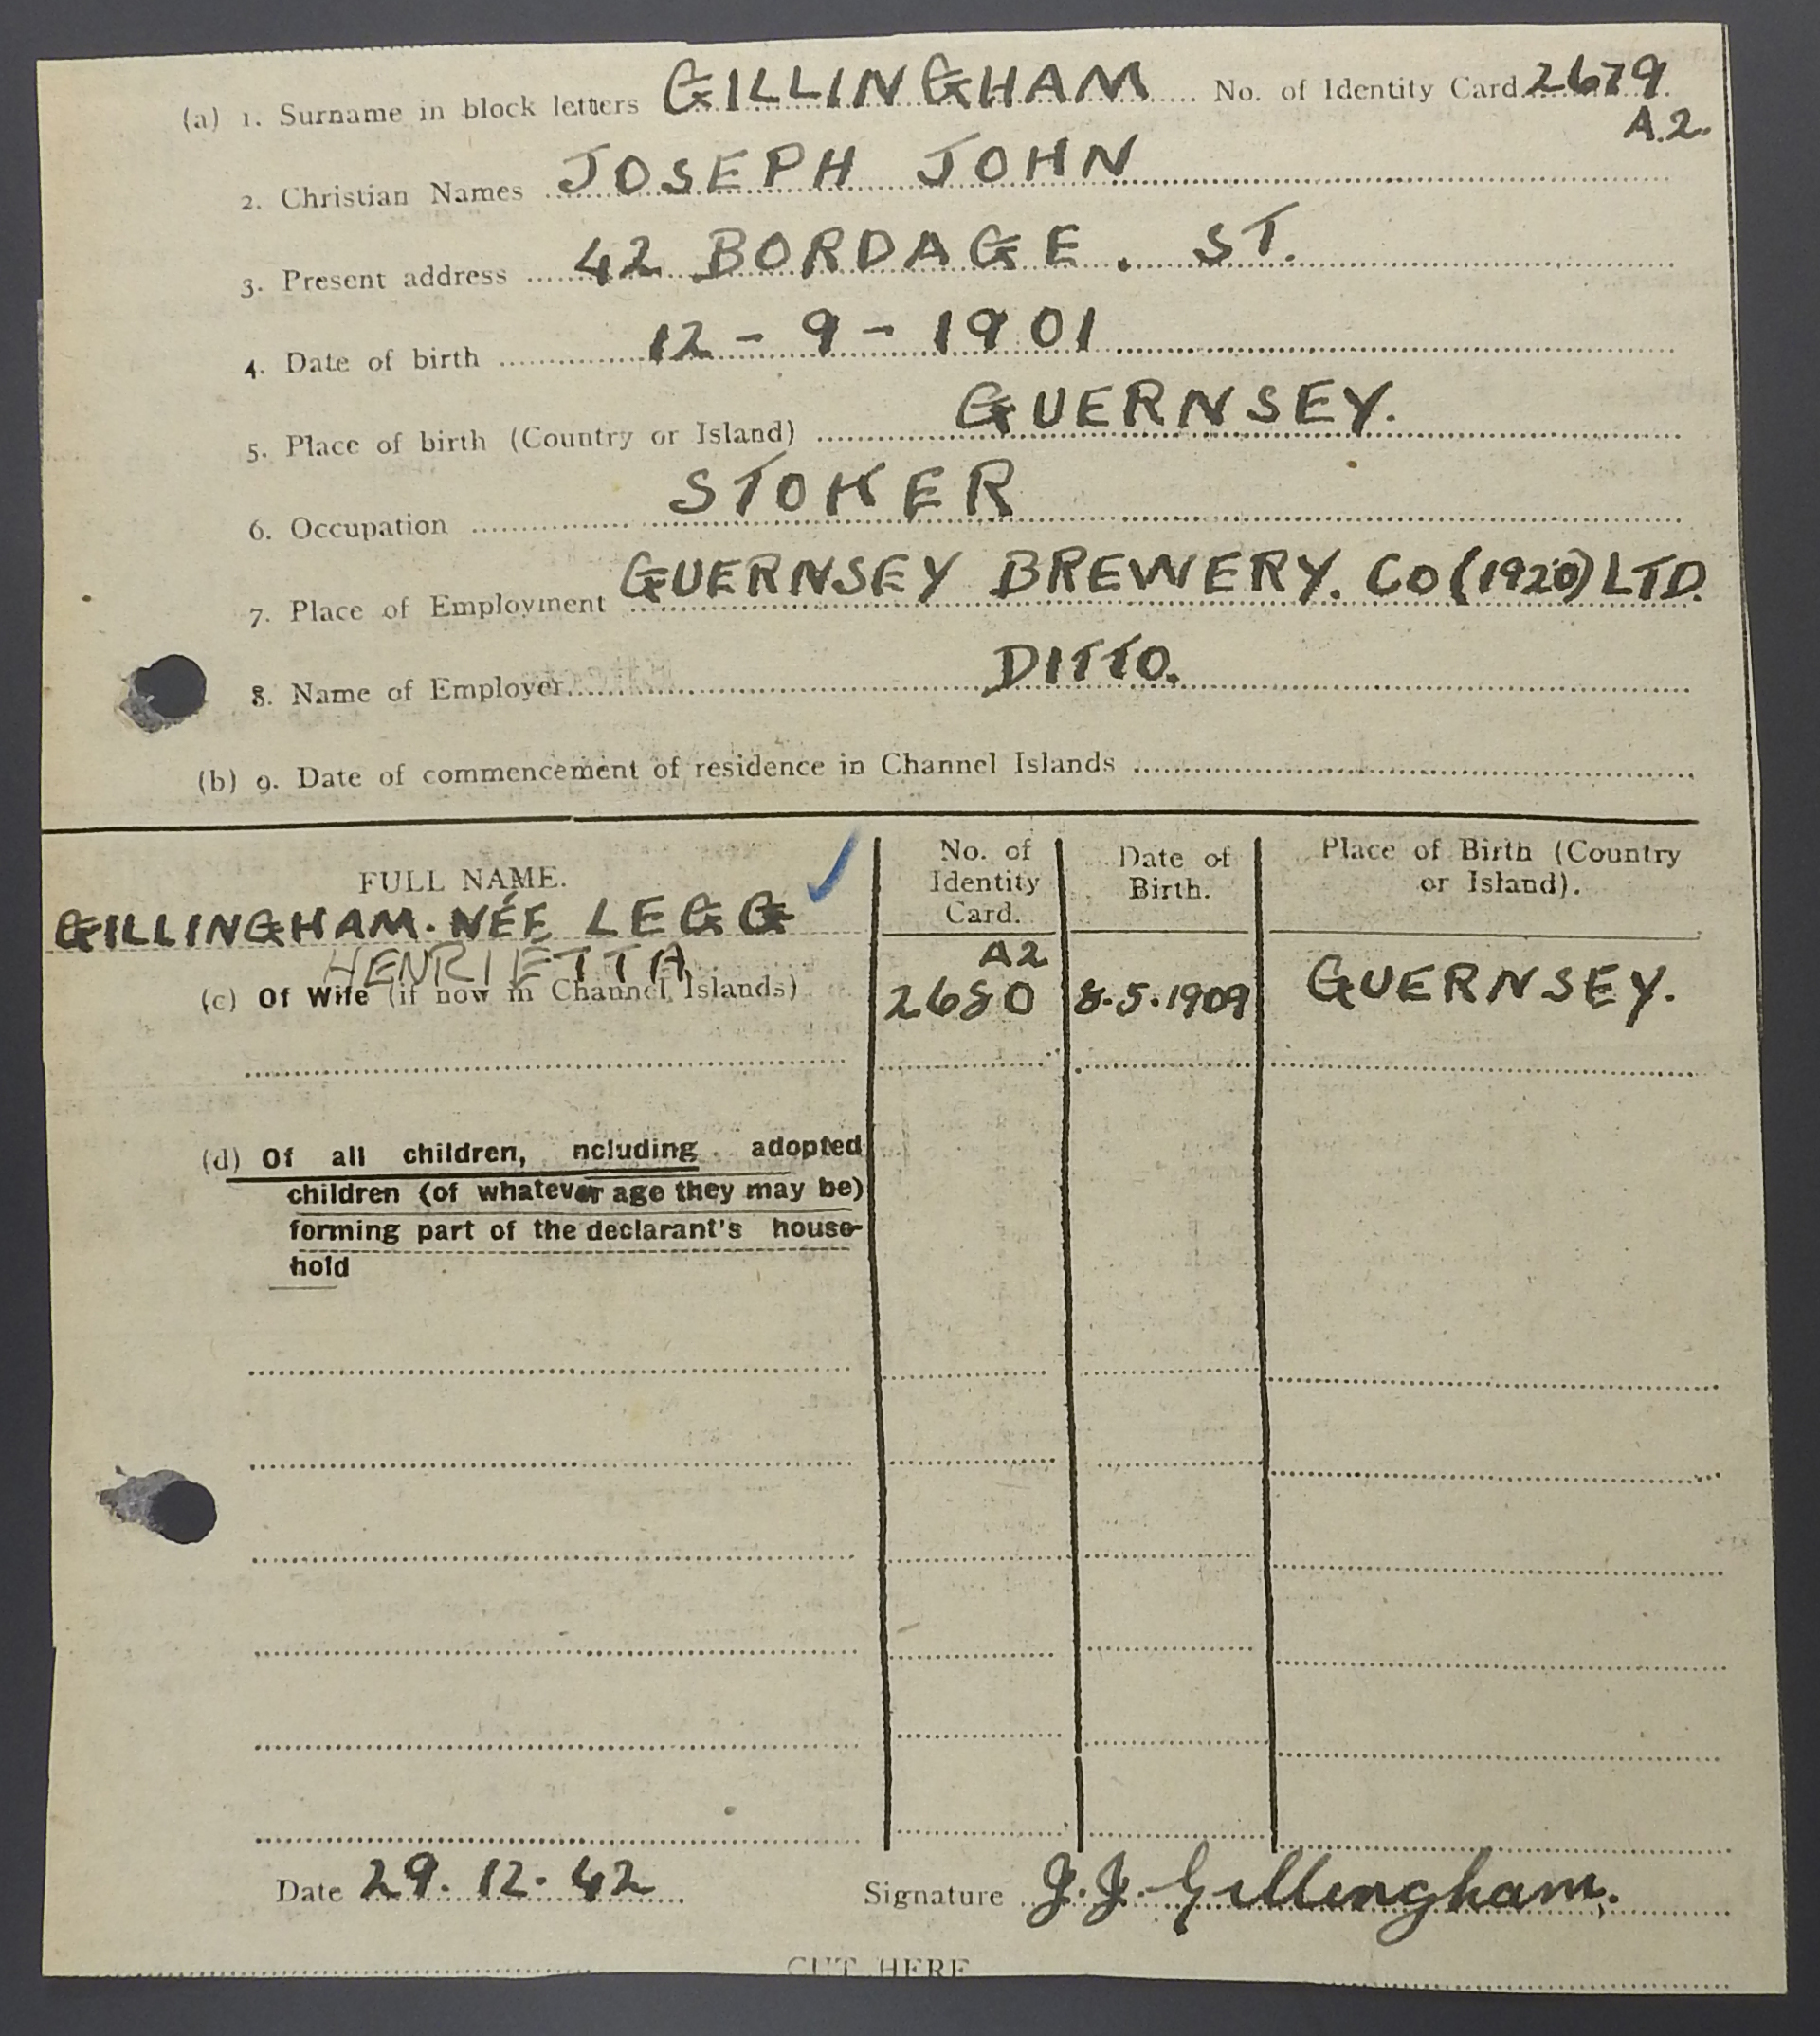 (a) 1. Surname in block letters GILLINGHAM No. of Identity Card 2679
A.2.
2. Christian Names JOSEPH JOHN
3. Present address 42 BORDAGE. ST.
4. Date of birth 12 - 9 - 1901
5. Place of birth (Country or Island) GUERNSEY.
6. Occupation STOKER
7. Place of Employment GUERNSEY BREWERY. CO (1920) LTD.
8. Name of Employer DITTO.
(b) 9. Date of commencement of residence in Channel Islands
FULL NAME.
No. of Identity Card.
Date of Birth.
Place of Birth (Country or Island).
GILLINGHAM. NÉE LEGG
HENRIETTA
(c) Of Wife (if now in Channel Islands)
A2
2680 8.5.1909 GUERNSEY.
(d) Of all children, ncluding adopted
children (of whatever age they may be)
forming part of the declarant's house-
hold
Date 29. 12. 42 Signature J. J. Gillingham.
CUT HERE